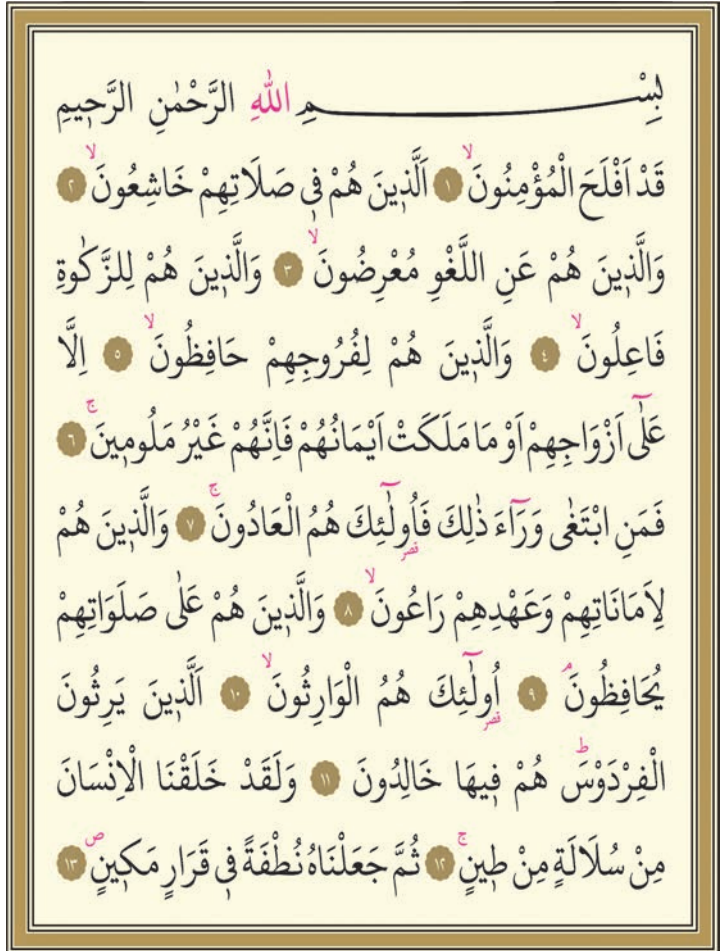 بِسْمِ اللّٰهِ الرَّحْمٰنِ الرَّحٖيمِ
قَدْ اَفْلَحَ الْمُؤْمِنُونَۙ ١ اَلَّذٖينَ هُمْ فٖى صَلَاتِهِمْ خَاشِعُونَۙ ٢
وَالَّذٖينَ هُمْ عَنِ اللَّغْوِ مُعْرِضُونَۙ ٣ وَالَّذٖينَ هُمْ لِلزَّكٰوةِ
فَاعِلُونَۙ ٤ وَالَّذٖينَ هُمْ لِفُرُوجِهِمْ حَافِظُونَۙ ٥ اِلَّا
عَلٰٓى اَزْوَاجِهِمْ اَوْ مَا مَلَكَتْ اَيْمَانُهُمْ فَاِنَّهُمْ غَيْرُ مَلُومٖينَۚ ٦
فَمَنِ ابْتَغٰى وَرَٓاءَ ذٰلِكَ فَاُو۬لٰٓئِكَ هُمُ الْعَادُونَۚ ٧ وَالَّذٖينَ هُمْ
لِاَمَانَاتِهِمْ وَعَهْدِهِمْ رَاعُونَۙ ٨ وَالَّذٖينَ هُمْ عَلٰى صَلَوَاتِهِمْ
يُحَافِظُونَۢ ٩ اُو۬لٰٓئِكَ هُمُ الْوَارِثُونَۙ ١٠ اَلَّذٖينَ يَرِثُونَ
الْفِرْدَوْسَؕ هُمْ فٖيهَا خَالِدُونَ ١١ وَلَقَدْ خَلَقْنَا الْاِنْسَانَ
مِنْ سُلَالَةٍ مِنْ طٖينٍۚ ١٢ ثُمَّ جَعَلْنَاهُ نُطْفَةً فٖى قَرَارٍ مَكٖينٍࣕ ١٣